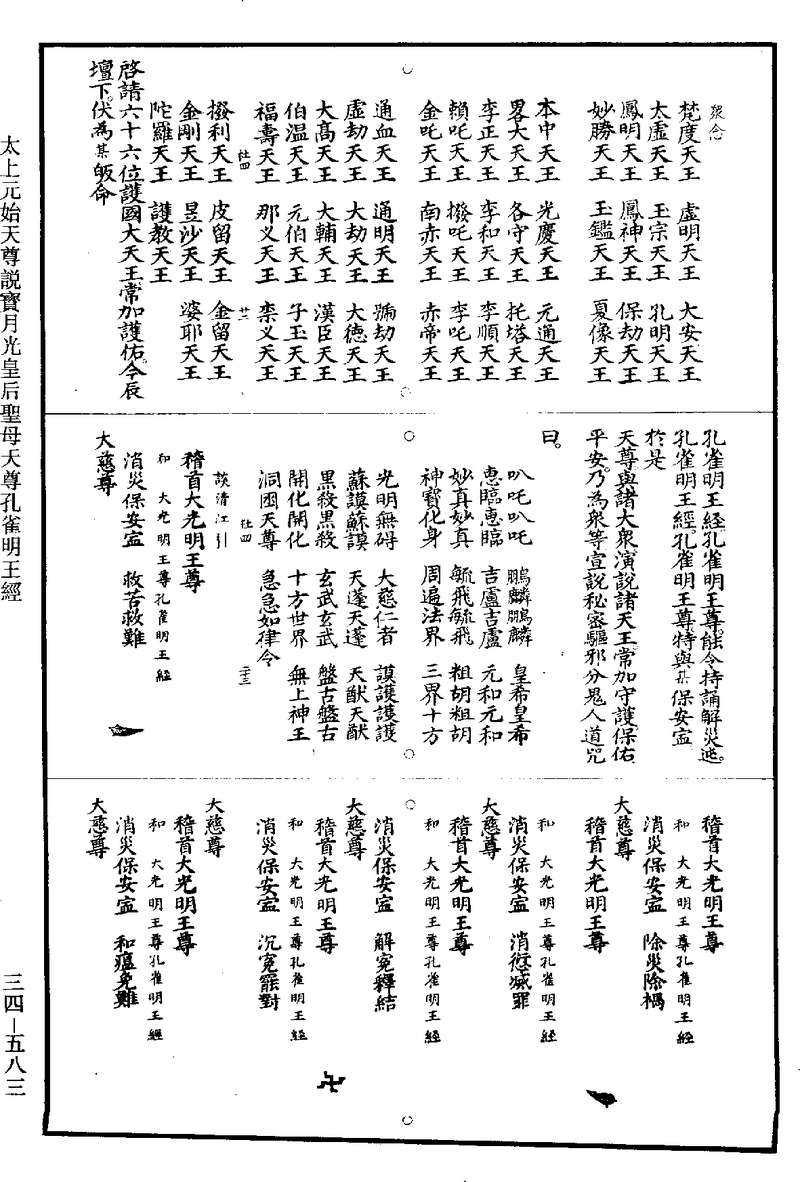 眾念
梵度天王　虛明天王　大安天王
太虛天王　玉宗天王　孔明天王
鳳明天王　鳳神天王　保劫天王
妙勝天王　玉鑑天王　夏像天王
本中天王　光慶天王　元通天王
畧大天王　各守天王　托塔天王
李正天王　李和天王　李順天王
賴吒天王　撥吒天王　李吒天王
金吒天王　南赤天王　赤帝天王
通血天王　通明天王　號劫天王
虛劫天王　大劫天王　大德天王
大高天王　大輔天王　漢臣天王
伯溫天王　元伯天王　子玉天王
福壽天王　那义天王　柰义天王
撥利天王　皮留天王　金留天王
金剛天王　昱沙天王　婆耶天王
陀羅天王　護教天王
啓請六十六位護國大天王常加護佑。今辰
壇下。伏為某皈命
孔雀明王經。孔雀明王尊。能令持誦解災迍。
孔雀明王經。孔雀明王尊。特與某保安寍
於是
天尊與諸大衆。演說諸天王。常加守護保佑
平安。乃為衆等宣說秘密驅邪分鬼人道咒
曰。
叭吒叭吒　鵬麟鵬麟　皇希皇希
恵臨恵臨　吉盧吉盧　元和元和
妙真妙真　毓飛毓飛　粗胡粗胡
神寶化身　周遍法界　三界十方
光明無碍　大慈仁者　謨護護護
蘇謨蘇謨　天蓬天蓬　天猷天猷
黑殺黑殺　玄武玄武　盤古盤古
開化開化　十方世界　無上神王
洞囦天尊　急急如律令
談清江引
稽首大光明王尊
和　大光明王尊孔雀明王經
消災保安寍　救苦救難
大慈尊
稽首大光明王尊
和　大光明王尊孔雀明王經
消災保安寍　除災除禍
大慈尊
稽首大光明王尊
和　大光明王尊孔雀明王經
消災保安寍　消愆滅罪
大慈尊
稽首大光明王尊
和　大光明王尊孔雀明王經
消災保安寍　解寃釋結
大慈尊
稽首大光明王尊
和　大光明王尊孔雀明王經
消災保安寍　沉寃罷對
大慈尊
稽首大光明王尊
和　大光明王尊孔雀明王經
消災保安寍　和瘟免難
大慈尊
太上元始天尊説寶月光皇后聖母天尊孔雀明王經
三四—五八三